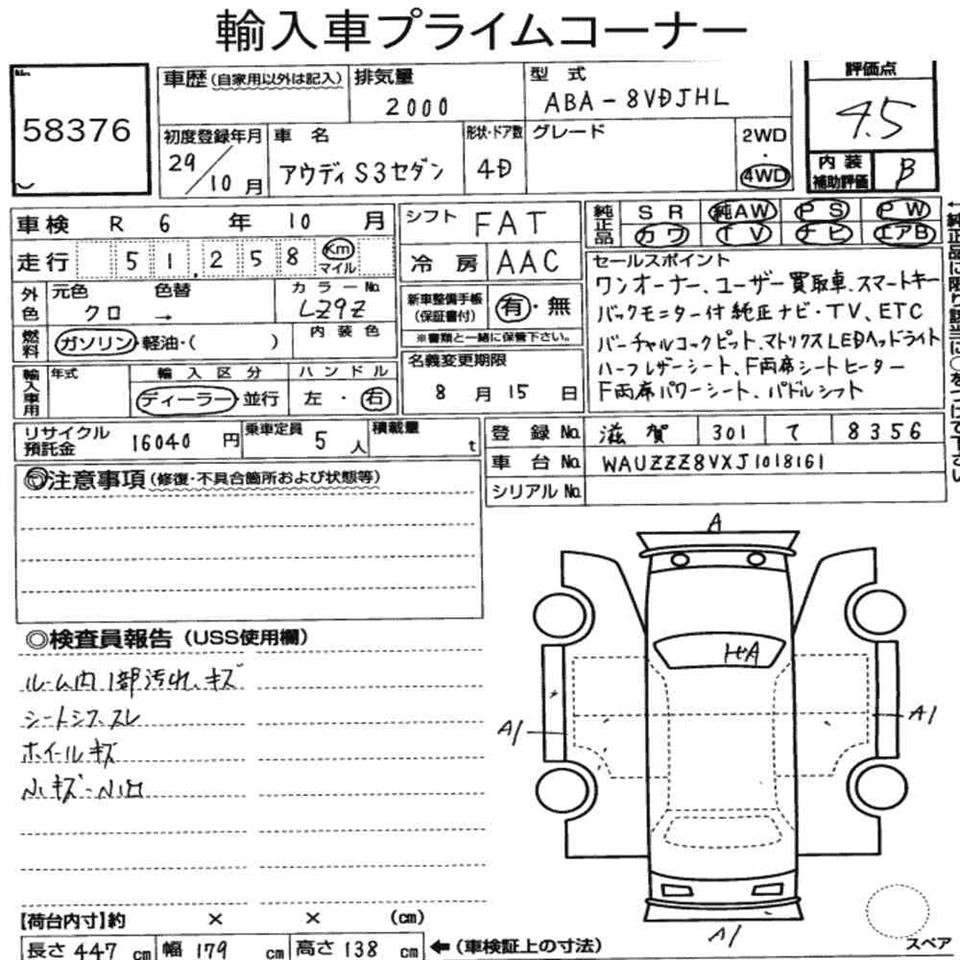 輸入車プライムコーナー
58376
車歴 (自家用以外は記入)
排気量 2000
型式 ABA-8VDJHL
評価点 4.5
初度登録年月 29/10月
車名 アウディS3セダン
形状・ドア数 4D
グレード
2WD・4WD
内装補助評価 B
車検 R 6 年 10 月
走行 51,258 Km マイル
シフト FAT
冷房 AAC
純正品 SR 純AW PS PW
カワ TV ナビ エアB
外色 元色 クロ 色替 → カラーNo. LZ9Z
燃料 ガソリン・軽油・( ) 内装色
輸入車用 年式 輸入区分 ディーラー・並行 ハンドル 左・右
新車整備手帳(保証書付) 有・無
※書類と一緒に保管下さい。
名義変更期限 8月15日
セールスポイント
ワンオーナー、ユーザー買取車、スマートキー
バックモニター付純正ナビ・TV、ETC
バーチャルコックピット、マトリックスLEDヘッドライト
ハーフレザーシート、F両席シートヒーター
F両席パワーシート、パドルシフト
←純正品に限り該当に○をつけて下さい
リサイクル預託金 16040円
乗車定員 5人
積載量 t
登録No. 滋賀 301 て 8356
車台No. WAUZZZ8VXJ1018161
シリアルNo.
◎注意事項(修復・不具合箇所および状態等)
◎検査員報告(USS使用欄)
ルーム内1部汚れ、キズ
シートシワ、スレ
ホイールキズ
小キズ・小凹
A
A1
A1
A1
スペア
【荷台内寸】約 × × (cm)
長さ 447 cm 幅 179 cm 高さ 138 cm ←(車検証上の寸法)